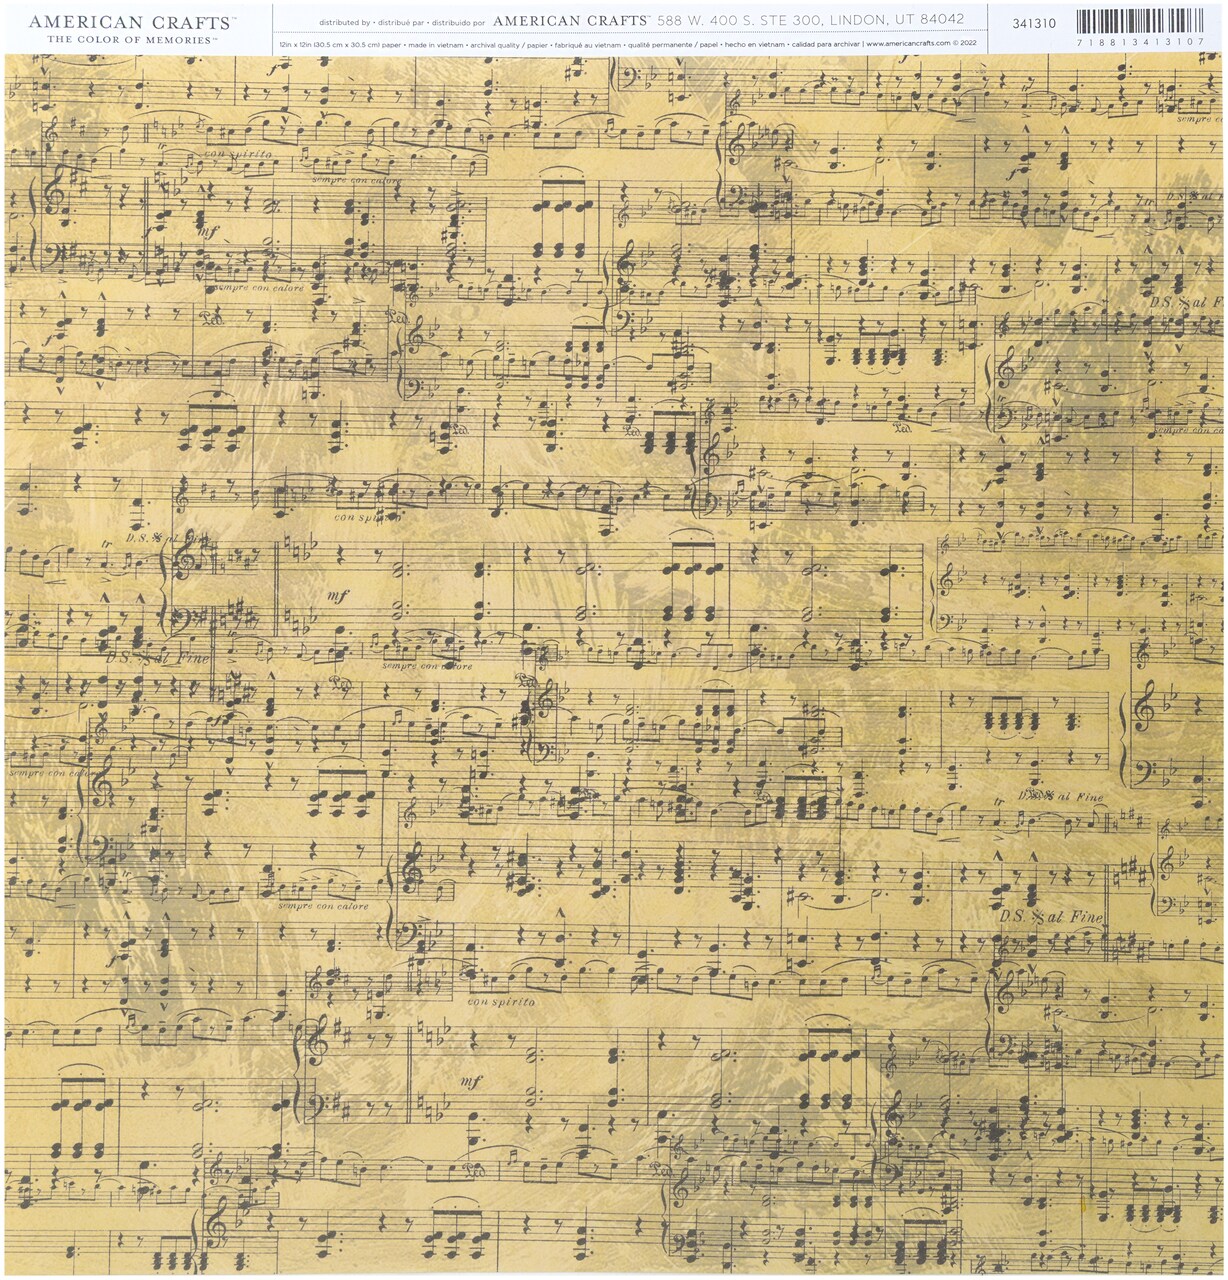 AMERICAN CRAFTS™
THE COLOR OF MEMORIES™
distributed by • distribué par • distribuido por AMERICAN CRAFTS™ 588 W. 400 S. STE 300, LINDON, UT 84042
12in x 12in (30.5 cm x 30.5 cm) paper • made in vietnam • archival quality / papier • fabriqué au vietnam • qualité permanente / papel • hecho en vietnam • calidad para archivar | www.americancrafts.com © 2022
341310
7 18813 41310 7
con spirito
sempre con calore
mf
sempre con calore
D.S. al F
con spirito
D.S. al Fine
mf
D.S. al Fine
sempre con calore
sempre con calore
D.S. al Fine
sempre con calore
D.S. al Fine
con spirito
mf